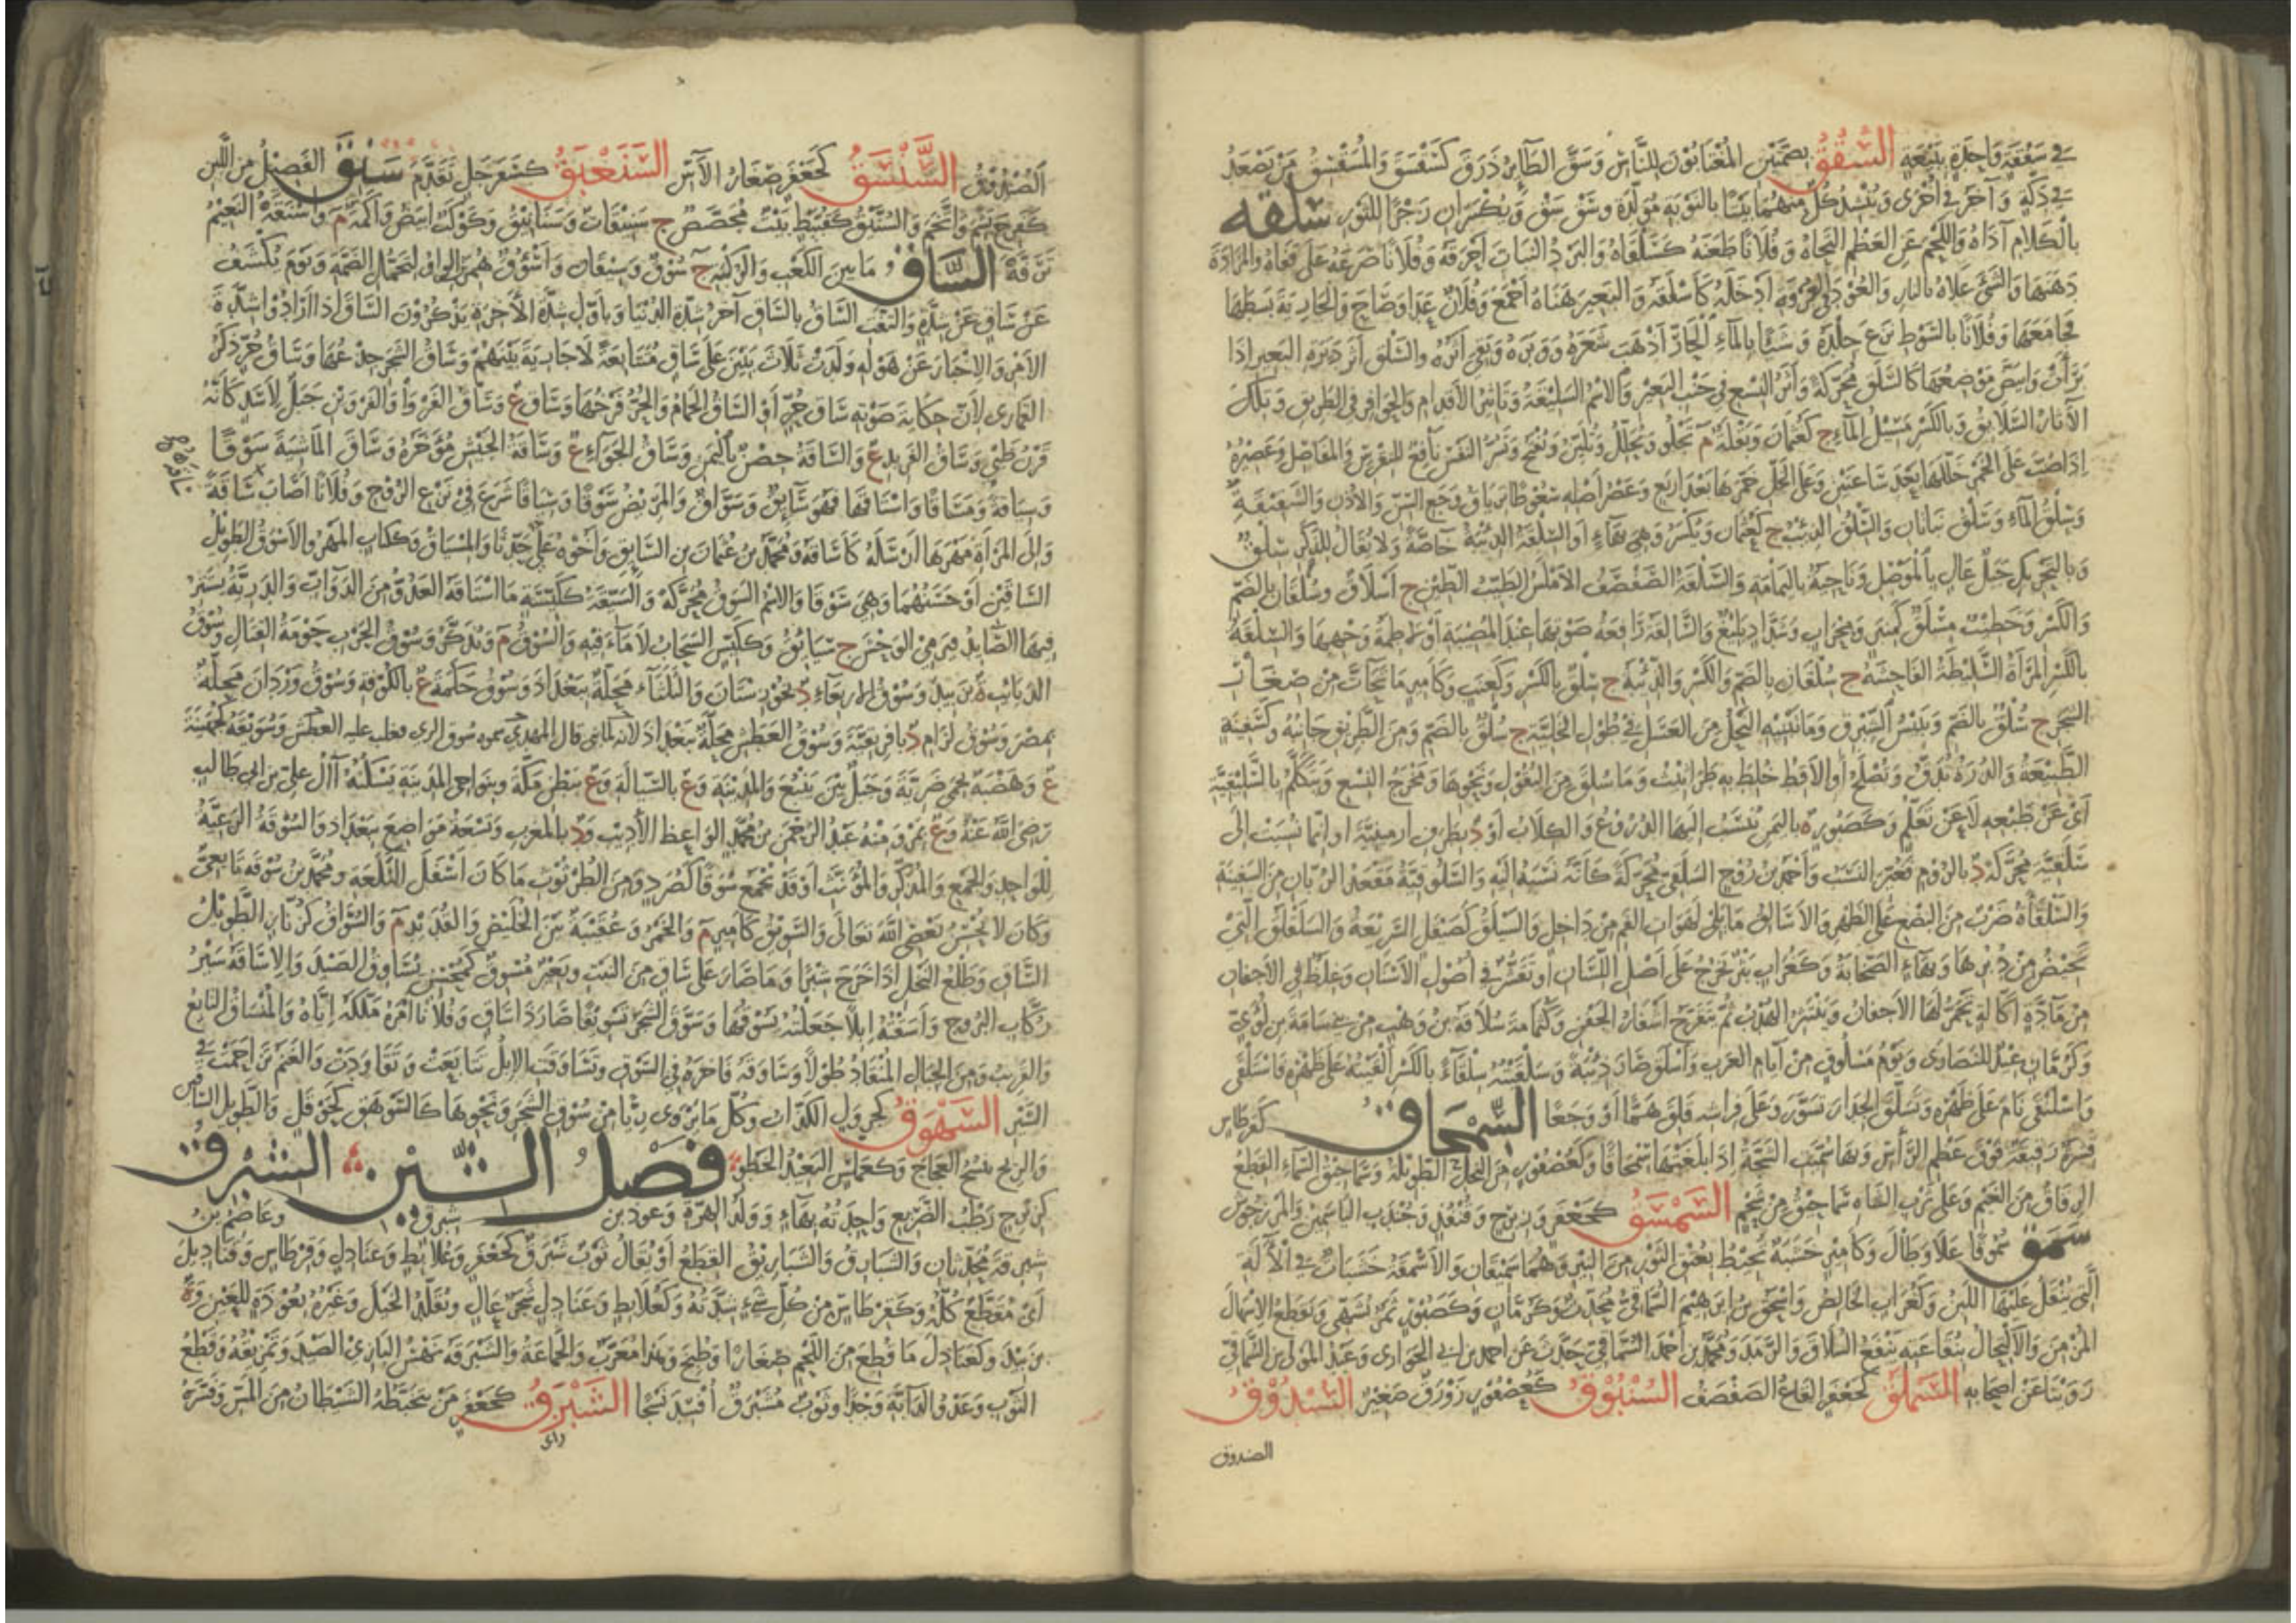 في سفقة واحدة بيعة السقق بضمتين المغتابون للناس وسق الطائر ذرق كسقسق والمسقسق من يصعد
في دكة وآخر في أخرى وينشد كل منهما بيتا بالنوبة مولدة وسق سق ويكسران زجرا للثور سلقه
بالكلام آذاه واللحم عن العظم التحاه وفلانا طعنه كسلقاه والبرد النبات أحرقه وفلانا صرعه على قفاه والمزادة
دهنها والشيء غلاه بالنار والعود في العروة أدخله كأسلقه والبعير هنأه أجمع وفلان عدا وصاح والجارية بسطها
فجامعها وفلانا بالسوط نزع جلده وشيئا بالماء الحار أذهب شعره ووبره وبقي أثره والسلق أثر دبرة البعير إذا
برأت وابيض موضعها كالسلق محركة وأثر النسع في جنب البعير والاسم السليقة وتأثير الأقدام والحوافر في الطريق وتلك
الآثار السلائق وبالكسر مسيل الماء ج كعثمان وبقلة م تجلو وتحلل وتلين وتفتح وتسر النفس نافع للنقرس والمفاصل وعصيره
إذا صب على الخمر خللها بعد ساعتين وعلى الخل خمرها بعد أربع وعصر أصله سعوطا ترياق وجع السن والأذن والشقيقة
وسلق الماء وسلق نباتان والسلق الذئب ج كعثمان ويكسر وهي بهاء أو السلقة الذئبة خاصة ولا يقال للذكر سلق
وبالتحريك جبل عال بالموصل وناحية باليمامة والسلقة الصفصف الأملس الطيب الطين ج أسلاق وسلقان بالضم
والكسر وخطيب مسلق كمنبر ومحراب وشداد بليغ والسالقة رافعة صوتها عند المصيبة أو لاطمة وجهها والسلقة
بالكسر المرأة السليطة الفاحشة ج سلقان بالضم والكسر والذئبة ج سلق بالكسر وكعنب وكأمير ما تحات من صغار
الشجر ج سلق بالضم ويبيس الشبرق وما يبنيه النحل من العسل في طول الخلية ج سلق بالضم ومن الطريق جانبه وكسفينة
الطبيعة والذرة تدق وتصلح أو الأقط خلط به طراثيث وما سلق من البقول ونحوها ومخرج النسع ويتكلم بالسليقية
أي عن طبعه لا عن تعلم وكصبور ه باليمن تنسب إليها الدروع والكلاب أو د بطرف أرمينية أو إنما نسبت إلى
سلقية محركة د بالروم فغير النسب وأحمد بن روح السلقي محركة كأنه نسبة إليه والسلوقية مقعد الربان من السفينة
والسلقاة ضرب من البضع على الظهر والأسالق ما يلي لهوات الفم من داخل والسيلق كصيقل السريعة والسلقلق التي
تحيض من دبرها وبهاء الصخابة وكغراب بثر تخرج على أصل اللسان أو تقشر في أصول الأسنان وغلظ في الأجفان
من مادة أكالة تحمر لها الأجفان وينتثر الهدب ثم تتقرح أشفار الجفن وكثمامة سلاقة بن وهب من بني سامة بن لؤي
وكرمان عيد للنصارى ويوم مسلوق من أيام العرب وأسلق صاد ذئبة وسلقيته سلقاء بالكسر ألقيته على ظهره فاستلقى
واستلقى نام على ظهره وتسلق الجدار تسور وعلى فراشه قلق هما أو وجعا السمحاق كقرطاس
قشرة رقيقة فوق عظم الرأس وبها سميت الشجة إذا بلغتها سمحاقا وكعصفور من النخل الطويلة وسماحيق السماء القطع
الرقاق من الغيم وعلى ثرب الشاة سماحيق من شحم السمسق كجعفر وزبرج وقنفذ وجندب الياسمين والمرزجوش
سمق سموقا علا وطال وكأمير خشبة تحيط بعنق الثور من النير وهما سميقان والأسمقة خشبات في الآلة
التي ينقل عليها اللبن وكغراب الخالص وإسحق بن إبراهيم السماقي محدث وكرمان وكصبور ثمر يشهي ويقطع الإسهال
المزمن والاكتحال بنقاعته ينفع السلاق والرمد ومحمد بن أحمد السماقي حدث عن أحمد بن أبي الحوارى وعبد المولى بن السماقي
روينا عن أصحابه السملق كجعفر القاع الصفصف السنبوق كعصفور زورق صغير السندوق
الصندوق
الصندوق السنسق كجعفر صغار الآس السنعبق كسفرجل تقدم سنق الفصيل من اللبن
كفرح بشم واتخم والسنيق كقبيط بيت مجصص ج سنيقات وسنانيق وكوكب أبيض وأكمة م وأسنقه النعيم
ترفه الساق ما بين الكعب والركبة ج سوق وسيقان وأسؤق همزت الواو لتحمل الضمة ويوم يكشف
عن ساق عن شدة والتفت الساق بالساق آخر شدة الدنيا بأول شدة الآخرة يذكرون الساق إذا أرادوا شدة
الأمر والإخبار عن هوله وولدت ثلاث بنين على ساق متتابعة لا جارية بينهم وساق الشجر جذعها وساق حر ذكر
القمارى لأن حكاية صوته ساق حر أو الساق الحمام والحر فرخها وساق ع وساق الفرو أو الفروين جبل لأسد كأنه
قرن ظبي وساق الفريد ع والساقة حصن باليمن وساق الجواء ع وساقة الجيش مؤخره وساق الماشية سوقا
وسياقة ومساقا واستاقها فهو سائق وسواق والمريض سوقا وسياقا شرع في نزع الروح وفلانا أصاب ساقه
وإلى المرأة مهرها أرسله كأساقه ومحمد بن عثمان بن السائق وأخوه علي حدثا والسياق ككتاب المهر والأسوق الطويل
الساقين أو حسنهما وهي سوقا والاسم السوق محركة والسيقة ككيسة ما استاقه العدو من الدواب والدريئة يستتر
فيها الصائد فيرمي الوحش ج سيائق وككيس السحاب لا ماء فيه والسوق م وتذكر وسوق الحرب حومة القتال وسوق
الذنائب ة بزبيد وسوق الأربعاء د بخوزستان والثلثاء محلة ببغداد وسوق حكمة ع بالكوفة وسوق وردان محلة
بمصر وسوق لزام د بأفريقية وسوق العطش محلة ببغداد لأنه لما بني قال المهدي سموه سوق الري فغلب عليه العطش وسويقة كجهينة
ع وهضبة بحمى ضرية وجبل بين ينبع والمدينة وع بالسيالة وع ببطن مكة وبنواحي المدينة يسكنه آل علي بن أبي طالب
رضي الله عنه وع بمرو منه عبد الرحمن بن محمد الواعظ الأديب ود بالمغرب وتسعة مواضع ببغداد والسوقة الرعية
للواحد والجمع والمذكر والمؤنث أو قد يجمع سوقا كصرد ومن الطرثوث ما كان أسفل النكعة ومحمد بن سوقة تابعي
وكان لا يحسن يعصي الله تعالى والسويق كأمير م والخمر وعقبة بين الخليص والقديد م والسواق كزنار الطويل
الساق وطلع النخل إذا خرج شبرا وما صار على ساق من النبت وبعير مسوق كمحسن يساوق الصيد والإساقة سير
ركاب السروج وأسقته إبلا جعلته يسوقها وسوق الشجر تسويقا صار ذا ساق وفلانا أمره ملكه إياه والمنساق التابع
والقريب ومن الجبال المنقاد طولا وساوقه فاخره في السوق وتساوقت الإبل تتابعت وتقاودت والغنم تزاحمت في
السير السهوق كجرول الكذاب وكل ما تروى ريا من سوق الشجر ونحوها كالسوهق كحوقل والطويل الساقين
والريح تنسج العجاج وكعملس البعيد الخطو فصل الشين الشبرق
كزبرج رطب الضريع واحدته بهاء وولد الهرة وعوذ بن شبرق وعاصم بن
شبرقة محدثان والشبارق والشباريق القطع أو يقال ثوب شبرق كجعفر وعلابط وعنادل وقرطاس وقناديل
أي مقطع كله وكقرطاس من كل شيء شدته وكعلابط وعنادل شجر عال وتقلد الخيل وغيره بعوذة للعين وة
بزبيد وكعنادل ما قطع من اللحم صغارا وطبخ وهذا معرب والجماعة والشبرقة نهش البازي الصيد وتمزيقه وقطع
الثوب وعدو الدابة وخدا وثوب مشبرق أفسد نسجا الشبزق كجعفر من يتخبطه الشيطان من المس وفسره